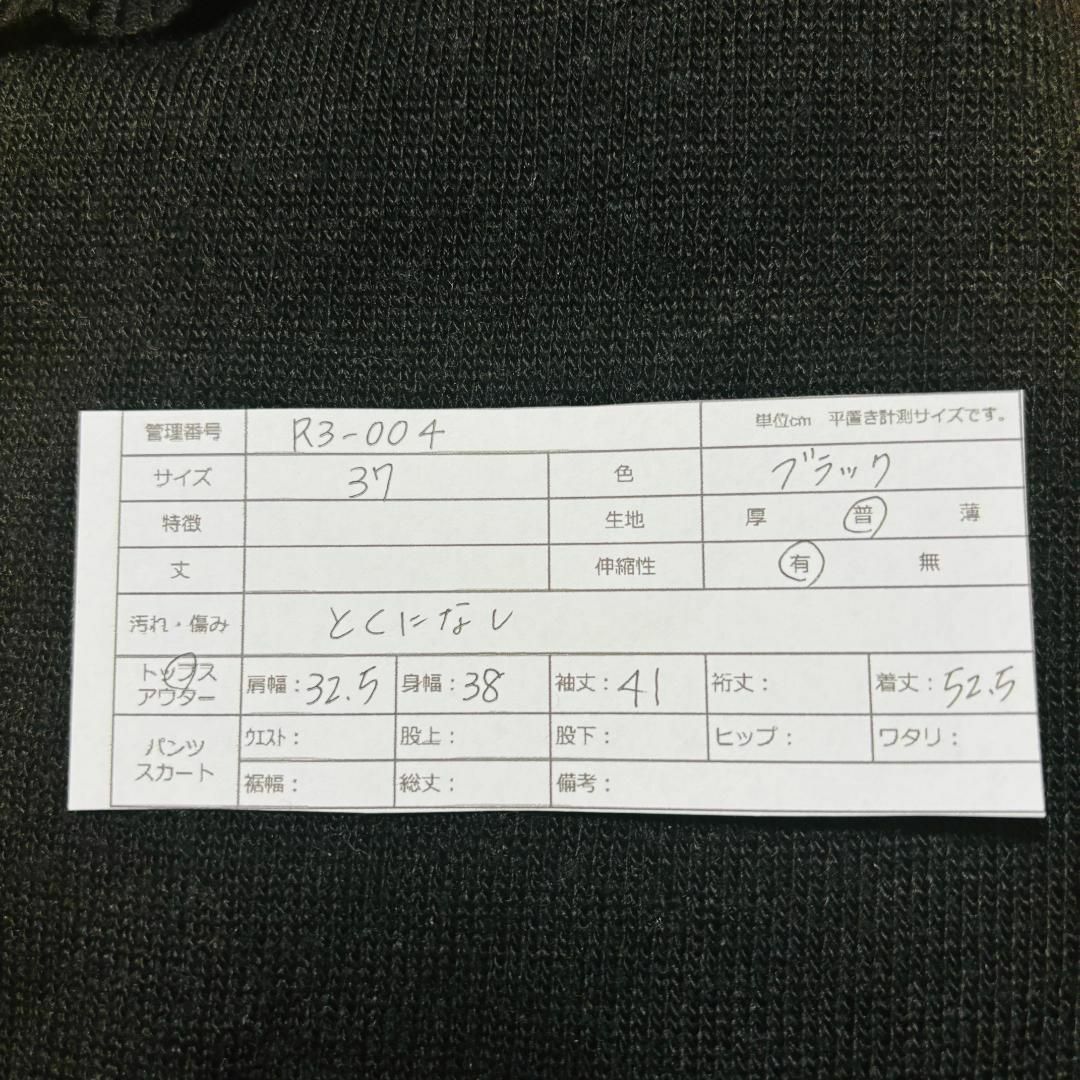 管理番号 R3-004 単位cm 平置き計測サイズです。
サイズ 37 色 ブラック
特徴 生地 厚 普 薄
丈 伸縮性 有 無
汚れ・傷み とくになし
トップス
アウター 肩幅：32.5 身幅：38 袖丈：41 裄丈： 着丈：52.5
パンツ
スカート ウエスト： 股上： 股下： ヒップ： ワタリ：
裾幅： 総丈： 備考：